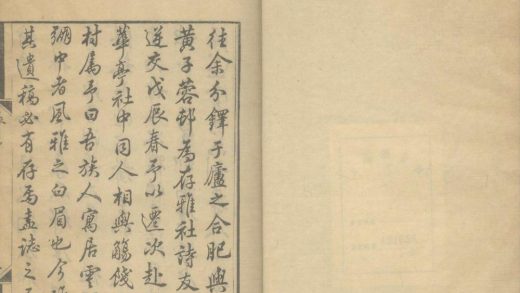 往余分鐸于廬之合肥與
黄子蓉邨為存雅社詩友
遂交戊辰春予以遷次赴
華亭社中同人相與觴餞
村属予曰吾族人寓居雲
弸中者風雅之白眉也今
其遺稿必有存焉盍誌之